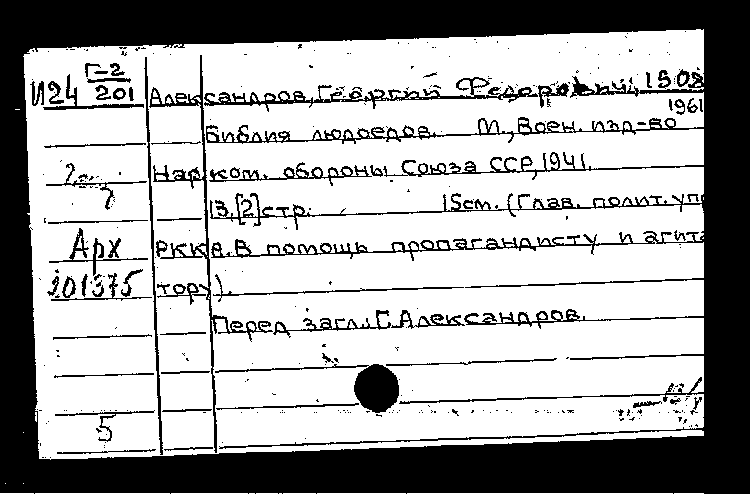 Г-2
И24 201 Александров, Георгий Федорович, 1908
1961
Библия людоедов. М., Воен. изд-во
Нар. ком. обороны Союза ССР, 1941.
13,[2]стр. 15см. (Глав. полит. упр
Арх РККА. В помощь пропагандисту и агита
201375 тору).
Перед загл.: Г. Александров.
5